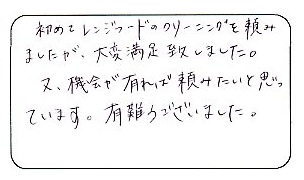 初めてレンジフードのクリーニングを頼み
ましたが、大変満足致しました。
又、機会が有れば頼みたいと思っ
ています。有難うございました。